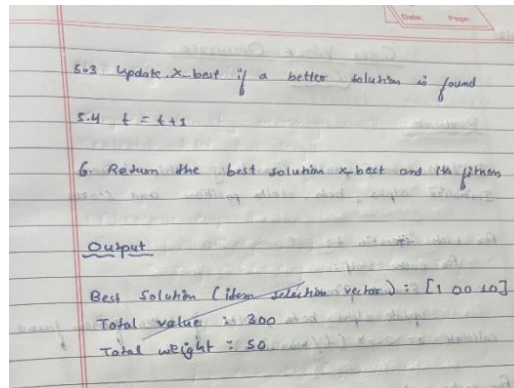 Date: Page:
5.3 Update X_best if a better solution is found
5.4 t = t+1
6. Return the best solution x_best and its fitness
Output
Best Solution (item selection vector) : [1 00 10]
Total value : 300
Total weight : 50